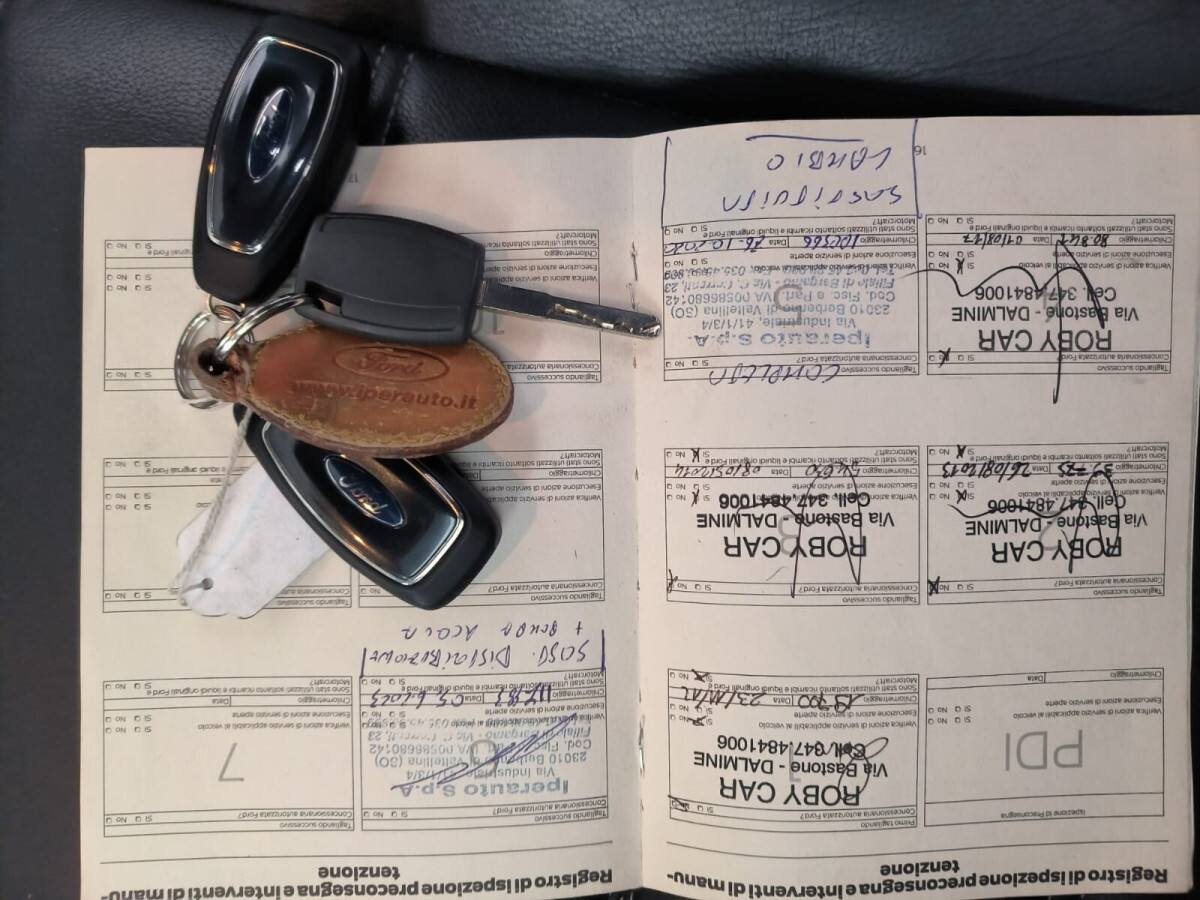 Registro di ispezione preconsegna e interventi di manu-
tenzione
Ispezione di Preconsegna
PDI
Data
Primo tagliando
Concessionaria autorizzata Ford? Sì No
ROBY CAR
Via Bastone - DALMINE
Cell. 347.4841006
Verifica azioni di servizio applicabili al veicolo Sì No
Esecuzione azioni di servizio aperte Sì No
Chilometraggio Data
Sono stati utilizzati soltanto ricambi e liquidi originali Ford e
Motorcraft? Sì No
Tagliando successivo
Concessionaria autorizzata Ford? Sì No
ROBY CAR
Via Bastone - DALMINE
Cell. 347.4841006
Verifica azioni di servizio applicabili al veicolo Sì No
Esecuzione azioni di servizio aperte Sì No
Chilometraggio Data 26/08/2013
Sono stati utilizzati soltanto ricambi e liquidi originali Ford e
Motorcraft? Sì No
Tagliando successivo
Concessionaria autorizzata Ford? Sì No
3
ROBY CAR
Via Bastone - DALMINE
Cell. 347.4841006
Esecuzione azioni di servizio aperte Sì No
Chilometraggio Data 08/05/2014
Sono stati utilizzati soltanto ricambi e liquidi originali Ford e
Motorcraft? Sì No
Tagliando successivo
Concessionaria autorizzata Ford? Sì No
ROBY CAR
Via Bastone - DALMINE
Cell. 347.4841006
Verifica azioni di servizio applicabili al veicolo Sì No
Esecuzione azioni di servizio aperte Sì No
Chilometraggio 80.847 Data 01/08/17
Sono stati utilizzati soltanto ricambi e liquidi originali Ford e
Motorcraft? Sì No
Tagliando successivo COMPLETA
Concessionaria autorizzata Ford? Sì No
5
Iperauto S.p.A.
Via Industriale, 41/1/3/4
23010 Berbenno di Valtellina (SO)
Cod. Fisc. e Part. IVA 00586680142
Filiale di Bergamo - Via C. Correnti, 23
Verifica azioni di servizio applicabili al veicolo Sì No
Esecuzione azioni di servizio aperte Sì No
Chilometraggio 100366 Data
Sono stati utilizzati soltanto ricambi e liquidi originali Ford e
Motorcraft? Sì No
SOSTITUITA
CAMBIO
16
Registro di ispezione preconsegna e interventi di manu-
tenzione
Tagliando successivo
Concessionaria autorizzata Ford? Sì No
Iperauto S.p.A.
Via Industriale 41/1/3/4
23010 Berbenno di Valtellina (SO)
Cod. Fisc. IVA 00586680142
Filiale di Bergamo - Via C. Correnti, 23
Verifica azioni di servizio applicabili al veicolo Sì No
Esecuzione azioni di servizio aperte Sì No
Chilometraggio Data
Sono stati utilizzati soltanto ricambi e liquidi originali Ford e
Motorcraft? Sì No
SOST. DISTRIBUZIONE
+ POMPA ACQUA
Tagliando successivo
Concessionaria autorizzata Ford? Sì No
7
Verifica azioni di servizio applicabili al veicolo Sì No
Esecuzione azioni di servizio aperte Sì No
Chilometraggio Data
Sono stati utilizzati soltanto ricambi e liquidi originali Ford e
Motorcraft? Sì No
Tagliando successivo
Concessionaria autorizzata Sì No
Verifica azioni di servizio
Esecuzione azioni di servizio Sì No
Chilometraggio
Sono stati utilizzati soltanto ricambi e liquidi
Motorcraft? Sì No
Tagliando successivo
Concessionaria autorizzata Ford? Sì No
Verifica azioni di servizio
Esecuzione azioni di servizio Sì No
Chilometraggio
Sono stati utilizzati soltanto ricambi e liquidi originali Ford
Motorcraft? Sì No
17
Ford
Ford
www.iperauto.it
Ford